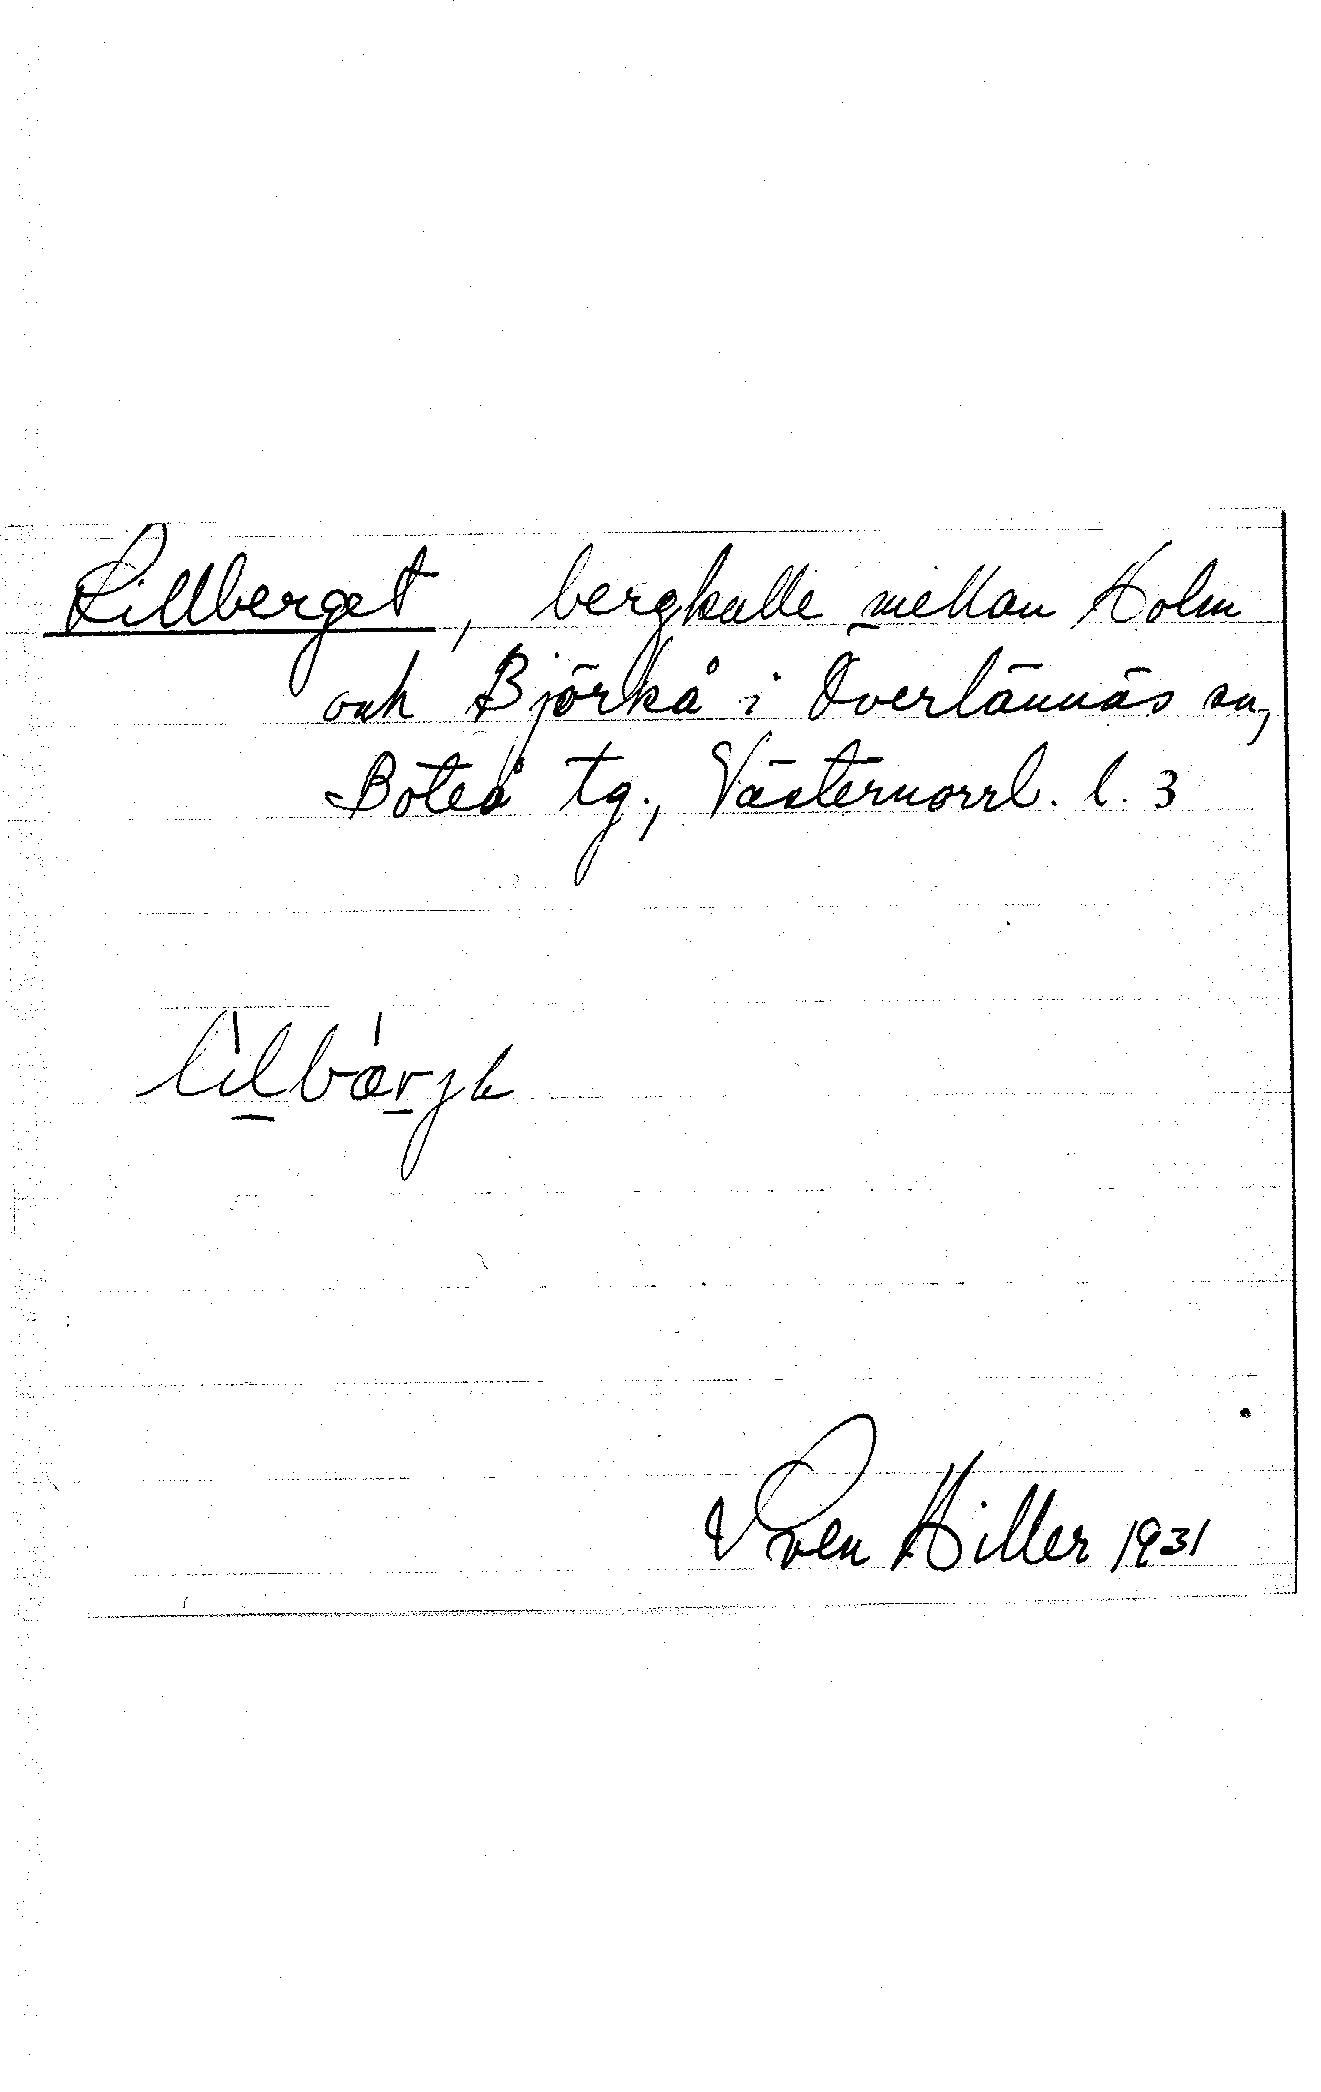 Lillberget, bergkulle mellan Holm
och Björkå i Överlännäs sn,
Boteå tg., Västernorrl. l. 3
lìlbæ̀rjə
Sven Hiller 1931